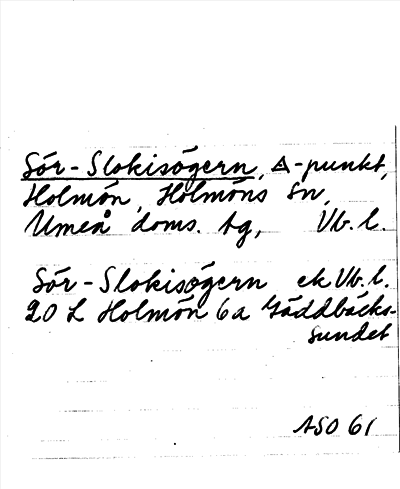 Sör-Slokisögern, △-punkt,
Holmön, Holmöns sn,
Umeå doms. tg, Vb. l.
Sör-Slokisögern ek Vb. l.
20 L Holmön 6a Gäddbäcks-
sundet
ASO 61